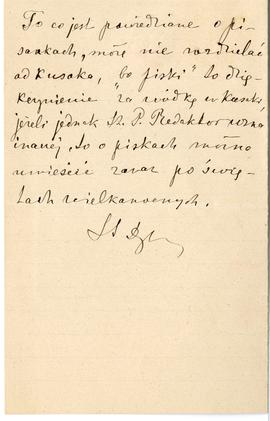 To co jest powiedziane o pi-
sankach, może nie rozdzielać
od kusaka, bo piski" to dzię-
kczynienie "za wódkę w kusaku,
jeżeli jednak Sz. P. Redaktor uzna
inaczej, to o piskach można
umieścić zaraz po świę-
tach wielkanocnych.